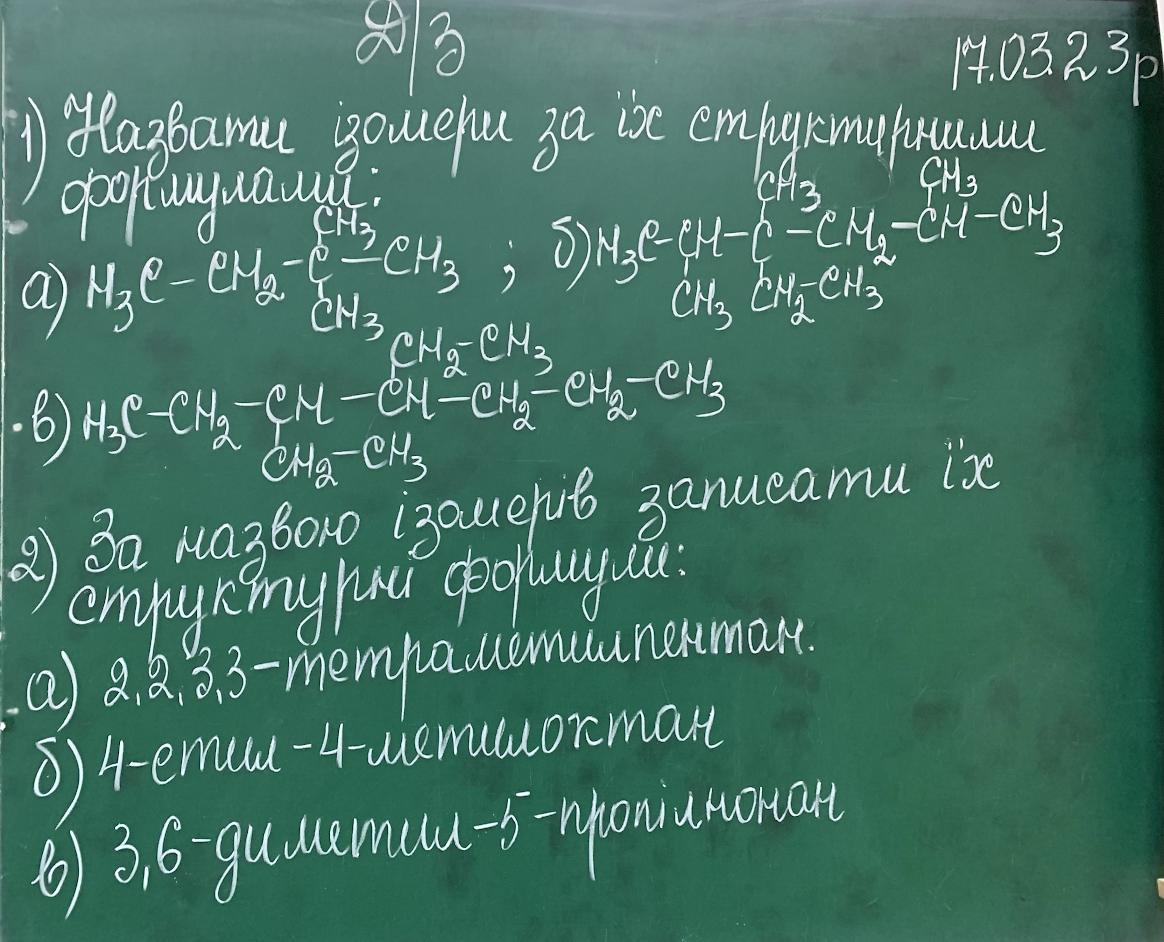 Д/З
17.03.23р
1) Назвати ізомери за їх структурними
формулами:
CH3 CH3 CH3
а) H3C-CH2-C-CH3 ; б) H3C-CH-C-CH2-CH-CH3
CH3 CH3 CH2-CH3
CH2-CH3
в) H3C-CH2-CH-CH-CH2-CH2-CH3
CH2-CH3
2) За назвою ізомерів записати їх
структурні формули:
а) 2,2,3,3-тетраметилпентан.
б) 4-етил-4-метилоктан
в) 3,6-диметил-5-пропілнонан